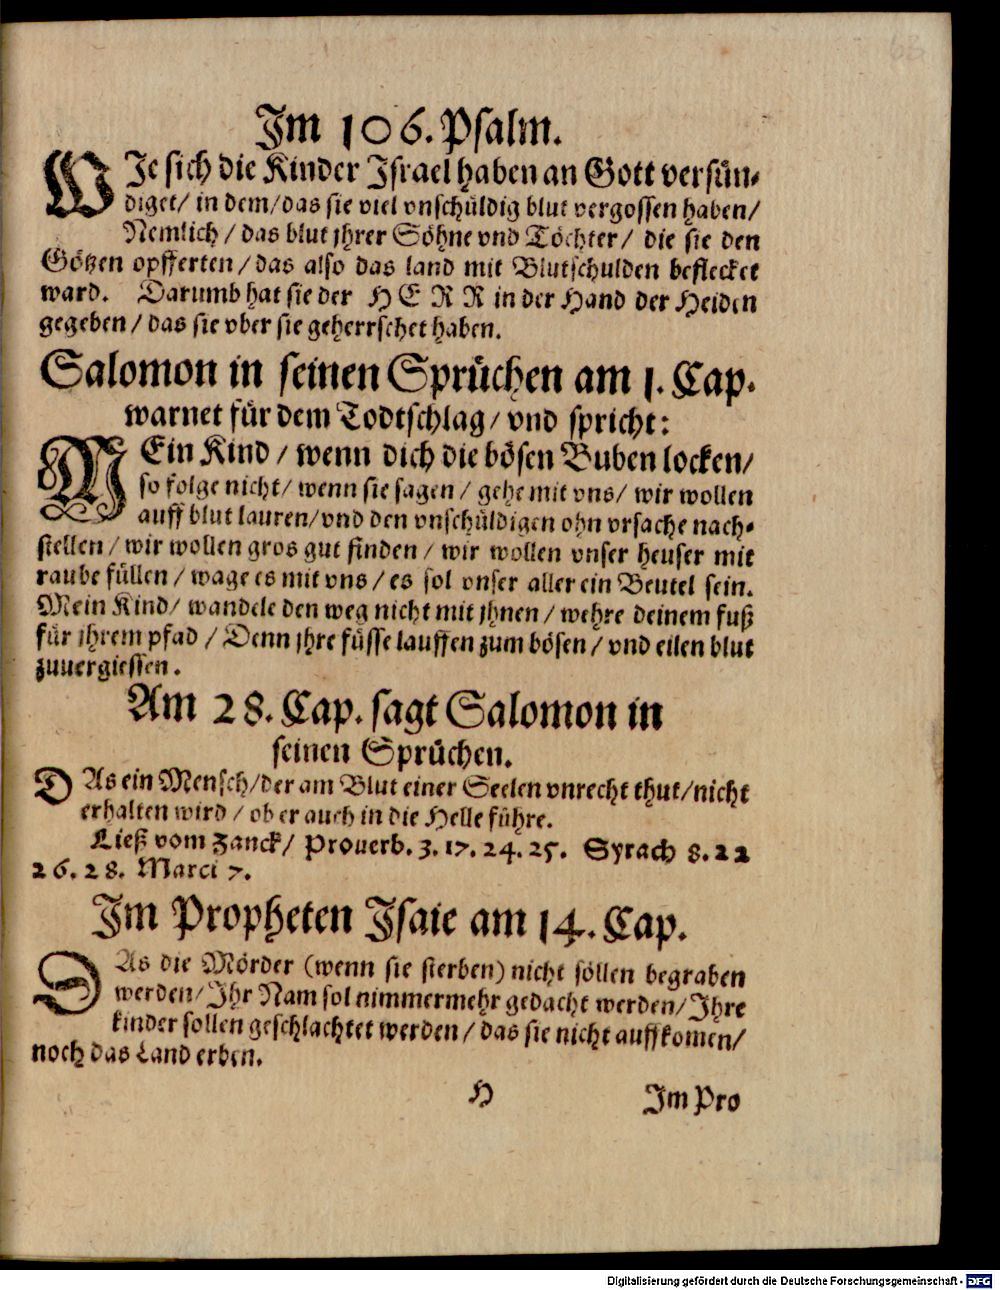 63
Im 106. Psalm.
WJe sich die Kinder Israel haben an Gott versün-
diget/ in dem/ das sie viel vnschüldig blut vergossen haben/
Nemlich/ das blut jhrer Söhne vnd Töchter/ die sie den
Götzen opfferten/ das also das land mit Blutschulden beflecket
ward. Darumb hat sie der HERR in der Hand der Heiden
gegeben/ das sie vber sie geherrschet haben.
Salomon in seinen Sprüchen am 1. Cap.
warnet für dem Todtschlag/ vnd spricht:
MEin Kind/ wenn dich die bösen Buben locken/
so folge nicht/ wenn sie sagen/ gehe mit vns/ wir wollen
auff blut lauren/ vnd den vnschüldigen ohn vrsache nach-
stellen/ wir wollen gros gut finden/ wir wollen vnser heuser mit
raube füllen/ wage es mit vns/ es sol vnser aller ein Beutel sein.
Mein Kind/ wandele den weg nicht mit jhnen/ wehre deinem fuß
für jhrem pfad/ Denn jhre füsse lauffen zum bösen/ vnd eilen blut
zuuergiessen.
Am 28. Cap. sagt Salomon in
seinen Sprüchen.
DAs ein Mensch/ der am Blut einer Seelen vnrecht thut/ nicht
erhalten wird/ ob er auch in die Helle führe.
Ließ vom Zanck/ Prouerb. 3. 17. 24. 25. Syrach 8. 22
26. 28. Marci 7.
Im Propheten Isaie am 14. Cap.
DAs die Mörder (wenn sie sterben) nicht söllen begraben
werden/ Ihr Nam sol nimmermehr gedacht werden/ Ihre
kinder sollen geschlachtet werden/ das sie nicht auffkomen/
noch das Land erben.
H Im Pro
Digitalisierung gefördert durch die Deutsche Forschungsgemeinschaft - DFG